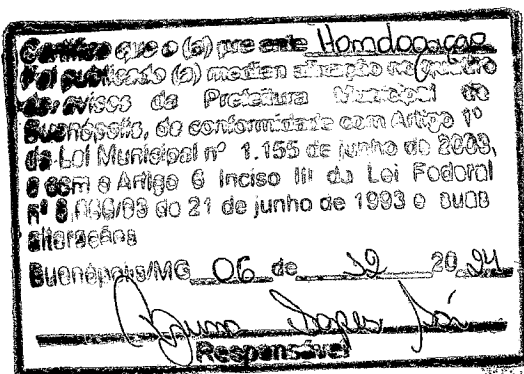 Certifico que o (a) presente Homologação
Foi publicado (a) median afixação no quadro
de avisos da Prefeitura Municipal de
Buenópolis, de conformidade com Artigo 1º
da Lei Municipal nº 1.155 de junho de 2009,
e com o Artigo 6 Inciso III da Lei Federal
nº 8.666/93 de 21 de junho de 1993 e suas
alterações
Buenópolis/MG 06 de 12 20 24
Bruna Lopes
Responsável